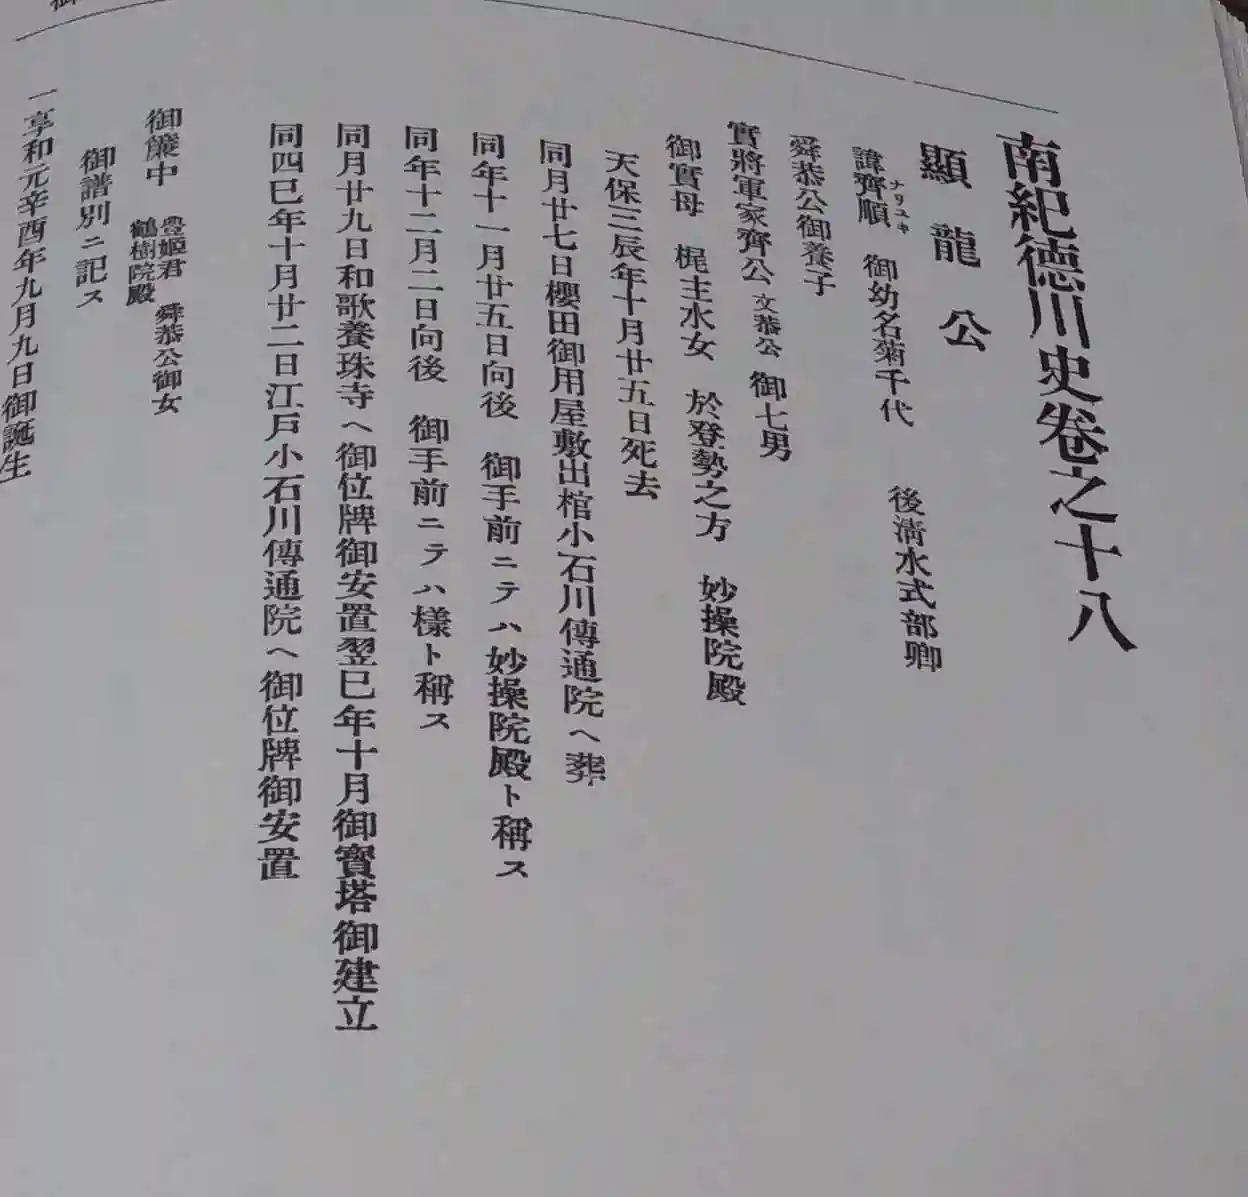 南紀德川史卷之十八
顯龍公
諱齊順 御幼名菊千代 後淸水式部卿
ナリユキ
舜恭公御養子
實將軍家齊公 文恭公 御七男
御實母 梶主水女 於登勢之方 妙操院殿
天保三辰年十月廿五日死去
同月廿七日櫻田御用屋敷出棺小石川傳通院ヘ葬
同年十一月廿五日向後 御手前ニテハ妙操院殿ト稱ス
同年十二月二日向後 御手前ニテハ樣ト稱ス
同月廿九日和歌養珠寺ヘ御位牌御安置翌巳年十月御寶塔御建立
同四巳年十月廿二日江戶小石川傳通院ヘ御位牌御安置
御簾中 豊姬君 舜恭公御女
鶴樹院殿
御譜別ニ記ス
一享和元辛酉年九月九日御誕生